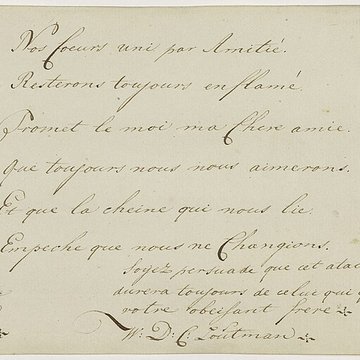 Nos Coeurs uni par Amitié.
Resterons toujours enflamé.
Promet le moi ma Chere amie.
Que toujours nous nous aimerons.
Et que la cheine qui nous lie.
Empeche que nous ne Changions.
Soyez persuade que cet atac
durera toujours de celui qui
votre obeisant frere
W: D: C: